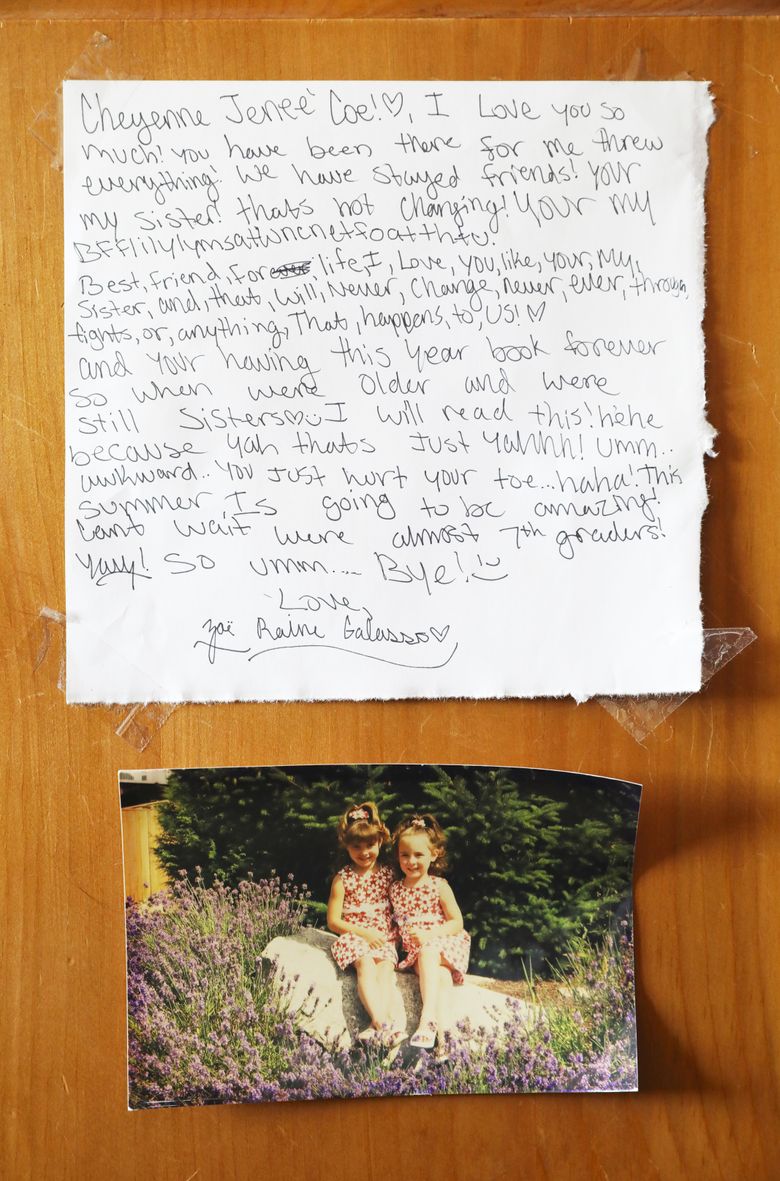 Cheyenne Jeneé Coe!♡, I Love you so
much! you have been there for me threw
everything! We have stayed friends! your
my sister! thats not changing! Your my
BFFlilylymsatwncnetfoatthtu!
Best, friend, for life, I, Love, you, like, your, My,
Sister, and, that, will, Never, change, never, ever, through,
fights, or, anything, That, happens, to, US!♡
and your having this year book forever
so when were older and were
still sisters♡ I will read this! hehe
because yah thats just yahhh! umm..
awkward.. you just hurt your toe... haha! This
summer Is going to be amazing!
Cant wait were almost 7th graders!
Yayy! So umm.... Bye! :)
Love,
Zoë Raine Galasso♡